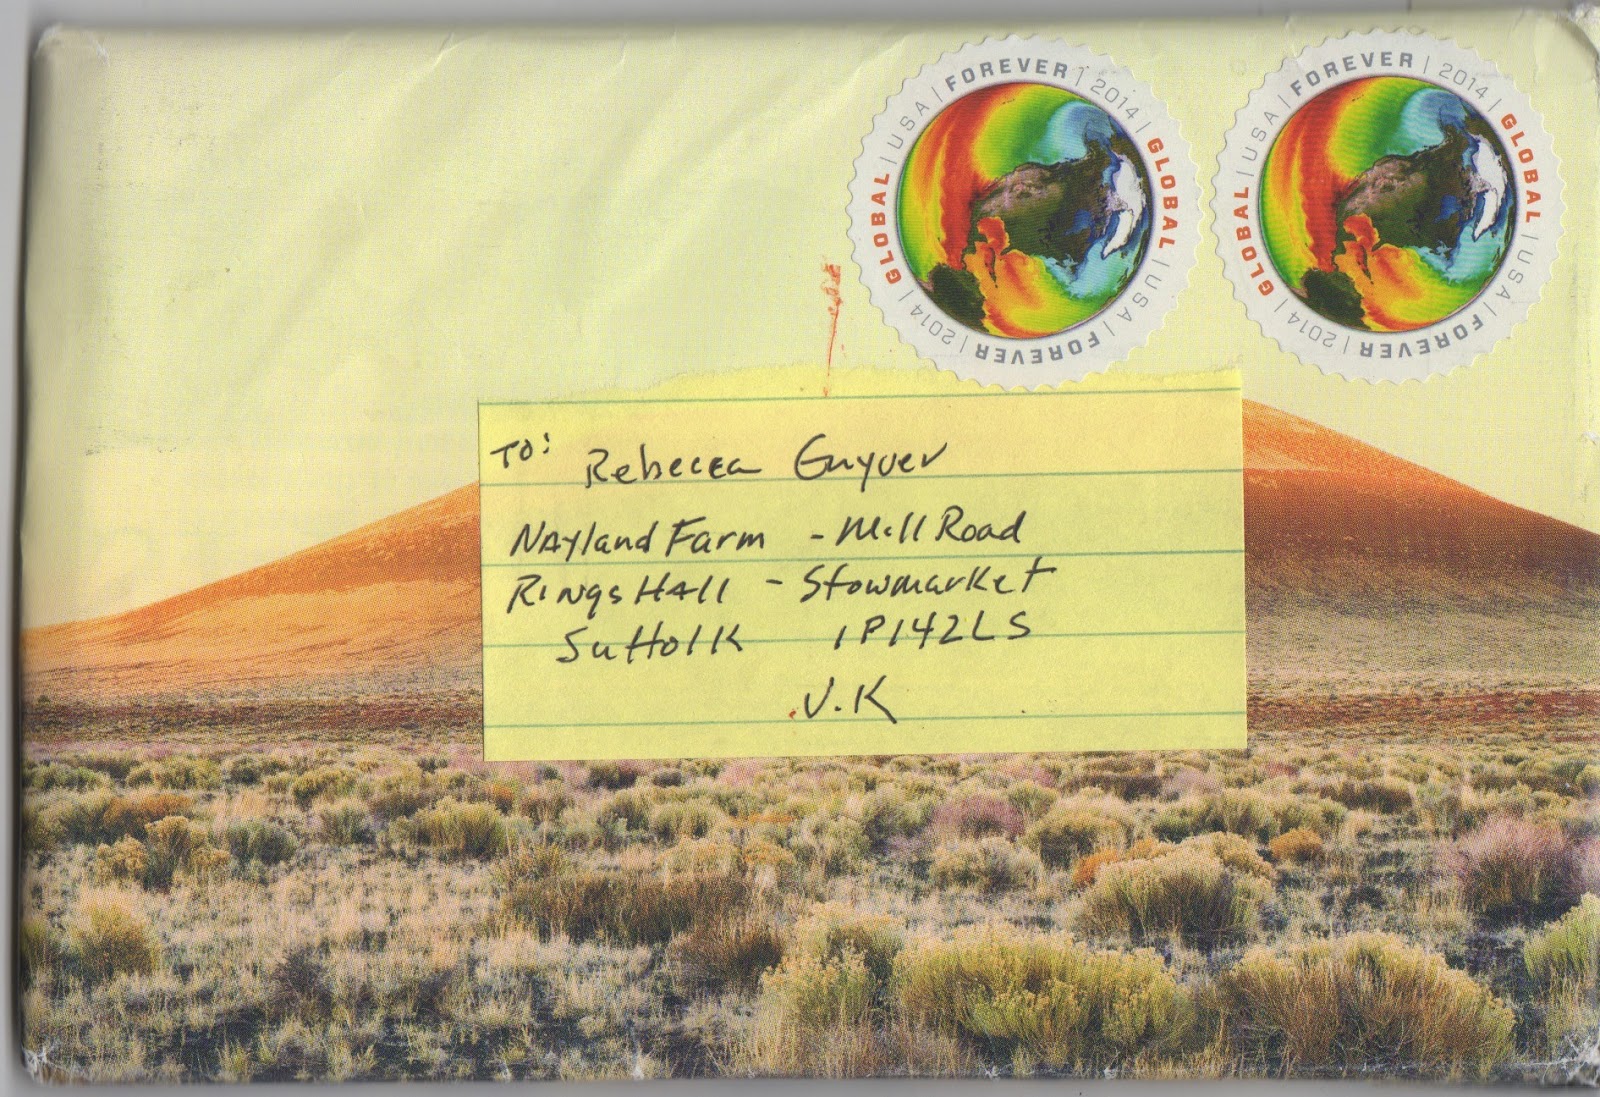 GLOBAL | USA | FOREVER | 2014 | GLOBAL | USA | FOREVER | 2014 |
GLOBAL | USA | FOREVER | 2014 | GLOBAL | USA | FOREVER | 2014 |
TO: Rebecca Guyver
Nayland Farm - Mill Road
RingsHall - Stowmarket
Suffolk IP142LS
U.K